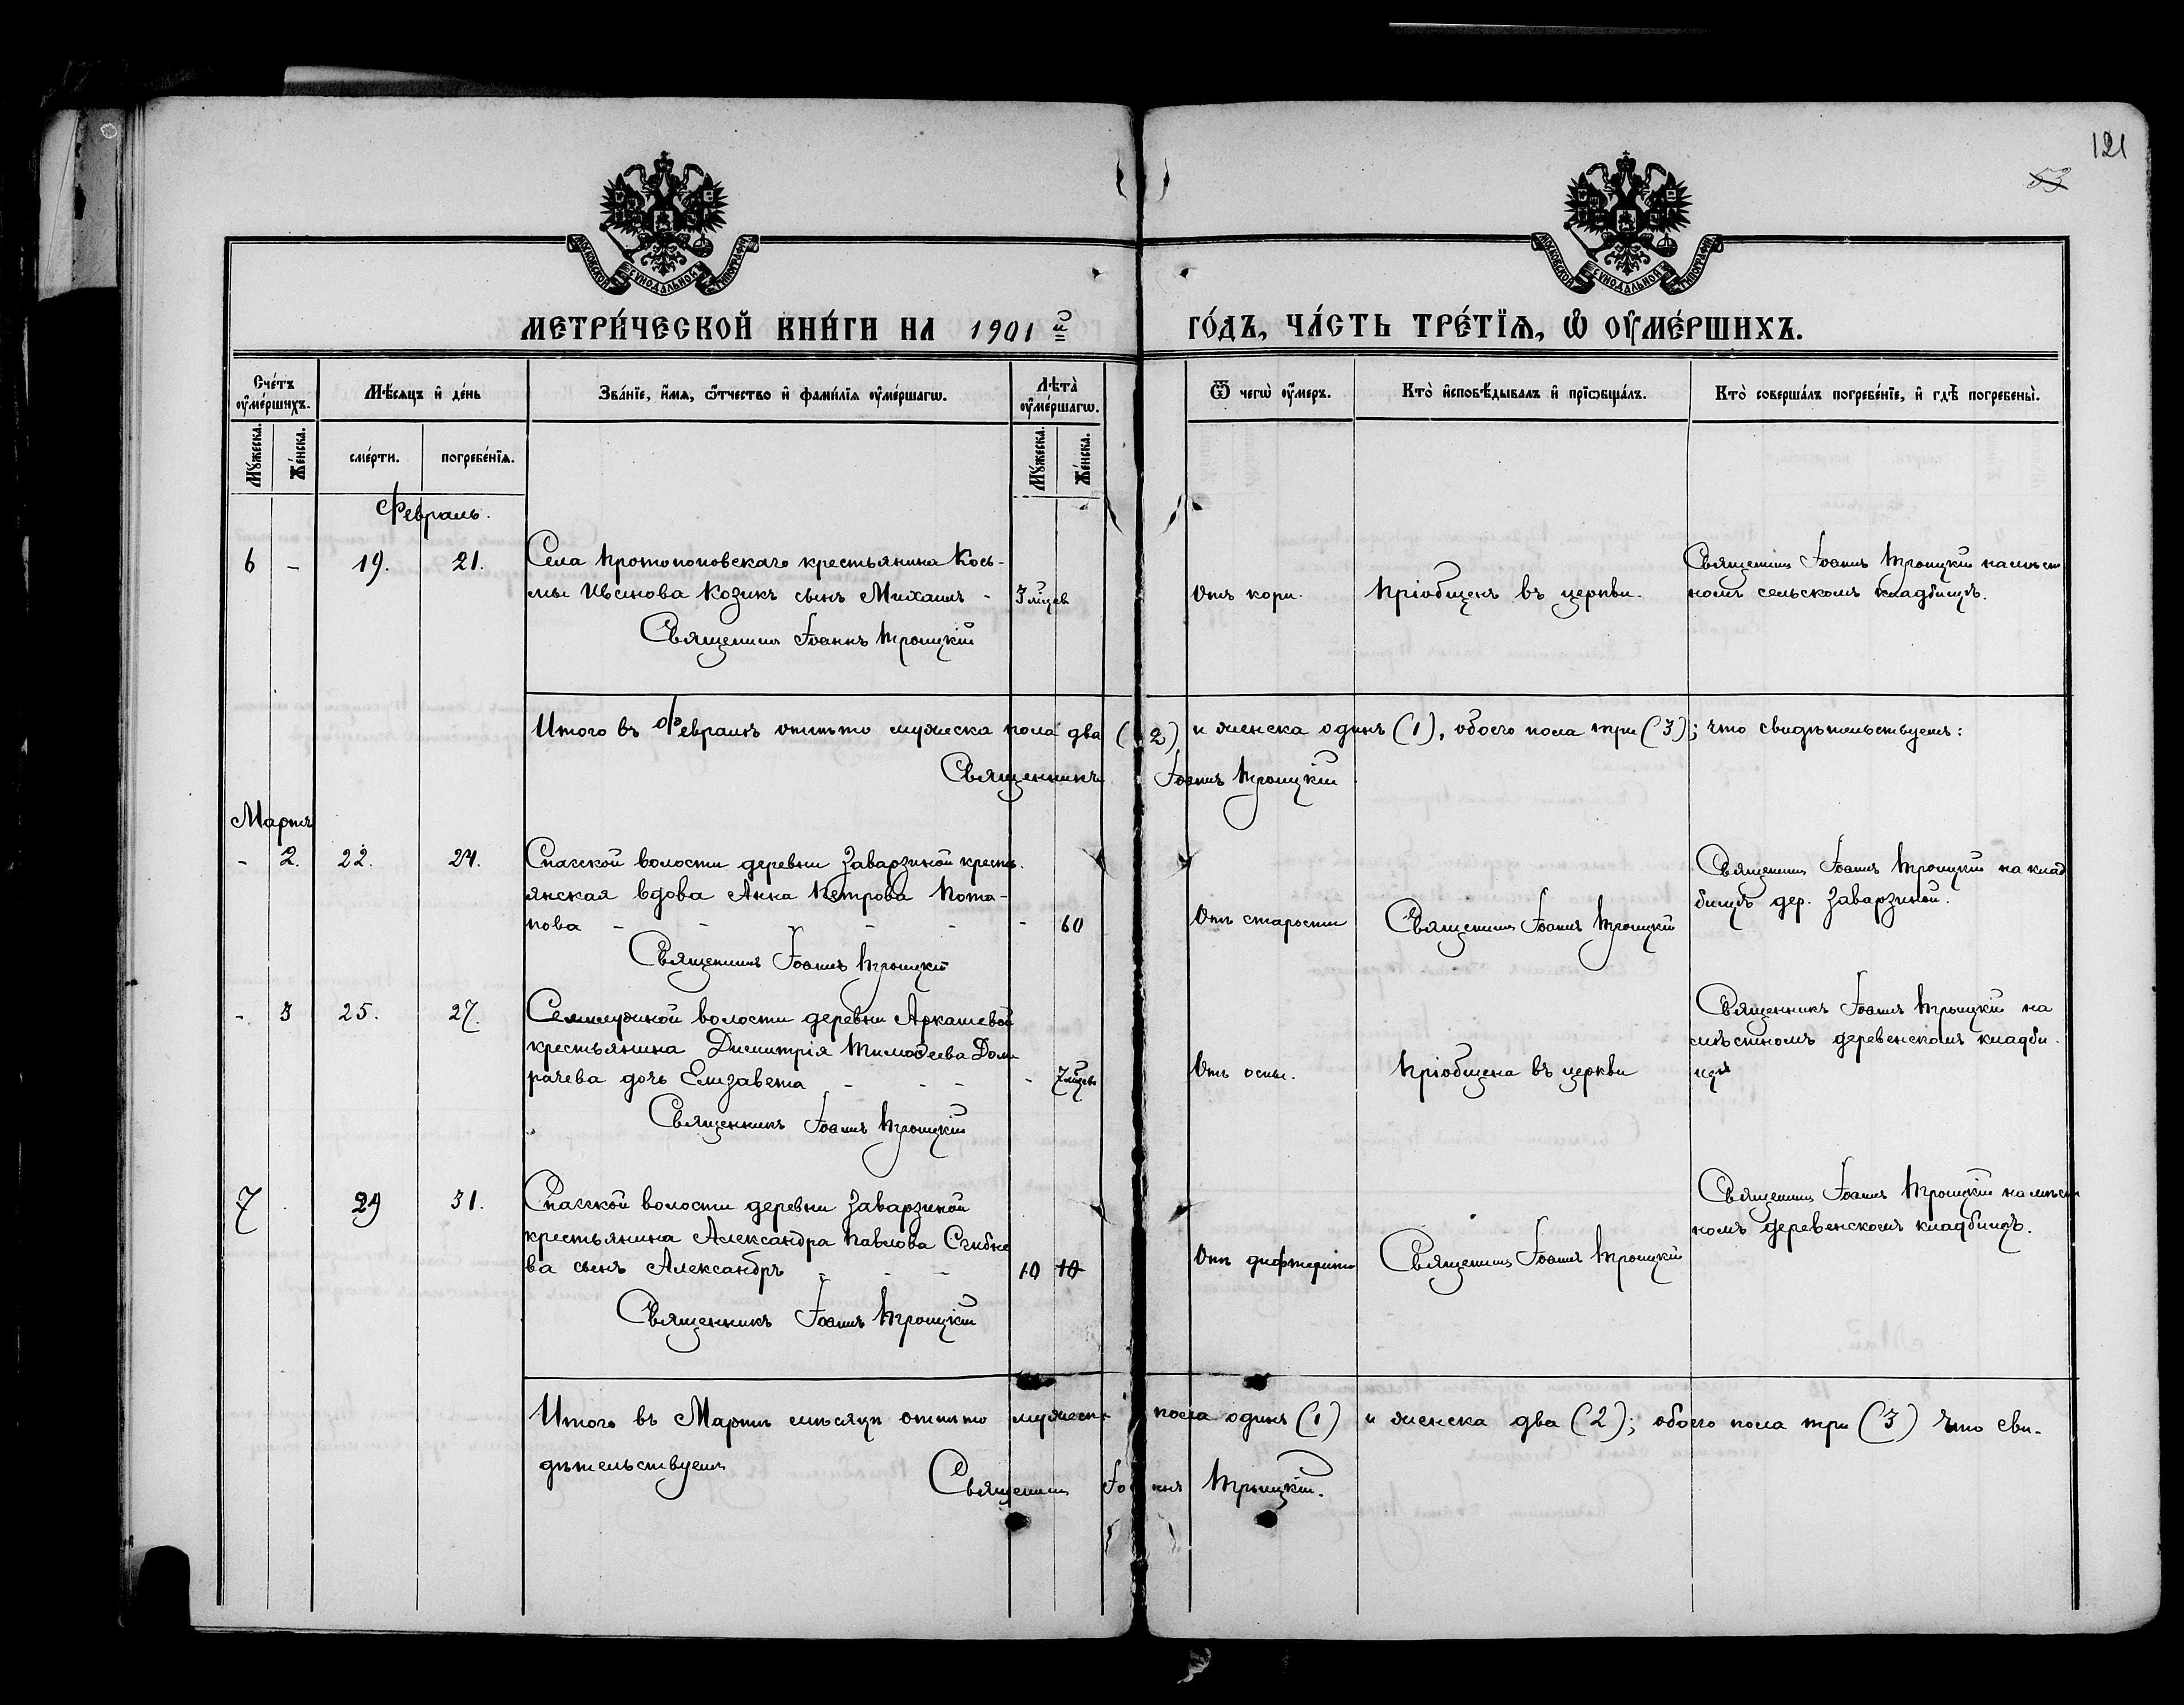 121
53
МОСКОВСКОЙ СУНОДАЛЬНОЙ ТИПОГРАФІИ
МОСКОВСКОЙ СУНОДАЛЬНОЙ ТИПОГРАФІИ
МЕТРИ́ЧЕСКОЙ КНИ́ГИ НА 1901 ГО́ДЪ, ЧА́СТЬ ТРЕ́ТЇѦ, Ѡ҆ ОУ҆МЕ́РШИХЪ.
Сче́тъ оу҆ме́ршихъ.
Мѣ́сяцъ и҆ де́нь
Зва́нїе, и҆́мѧ, ѻ҆́тчество и҆ фами́лїѧ оу҆ме́ршагѡ.
Лѣта̀ оу҆ме́ршагѡ.
Ѿ чегѡ̀ оу҆́меръ.
Кто̀ и҆сповѣ́дывалъ и҆ прїѡбща́лъ.
Кто̀ соверша́лъ погребе́нїе, и҆ гдѣ̀ погребены̀.
Мꙋ́жеска.
Же́нска.
сме́рти.
погребе́нїѧ.
Мꙋ́жеска.
Же́нска.
Февраль.
6 - 19. 21. Села Протопоповскаго крестьянина Кось-
мы Иванова Козикъ сынъ Михаилъ -
3 мѣсяц.
Священникъ Іоаннъ Троицкій
Отъ кори.
Пріобщенъ въ церкви.
Священникъ Іоаннъ Троицкій на мѣст
номъ сельскомъ кладбищѣ.
Итого въ Февралѣ отпѣто мужеска пола два (2) и женска одинъ (1), обоего пола три (3); что свидѣтельствуетъ:
Священникъ Іоаннъ Троицкій
Мартъ
- 2. 22. 24. Спасской волости деревни Заварзиной кресть.
янская вдова Анна Петрова Пота-
пова - - - - - - 60
Священникъ Іоаннъ Троицкій
Отъ старости
Священникъ Іоаннъ Троицкій
Священникъ Іоаннъ Троицкій на клад
бищѣ дер. Заварзиной.
- 3 25. 27. Семилужной волости деревни Аркашевой
крестьянина Димитрія Тимоѳеева Дом
рачева дочь Елизавета - - - - 7 мѣсяц.
Священникъ Іоаннъ Троицкій
Отъ оспы.
Пріобщена въ церкви
Священникъ Іоаннъ Троицкій на
мѣстномъ деревенскомъ кладби-
щѣ
7 29 31. Спасской волости деревни Заварзиной
крестьянина Александра Павлова Сгибне
ва сынъ Александръ - - - 10 10
Священникъ Іоаннъ Троицкій
Отъ дифтерита
Священникъ Іоаннъ Троицкій
Священникъ Іоаннъ Троицкій на мѣст
номъ деревенскомъ кладбищѣ.
Итого въ Мартѣ мѣсяцѣ отпѣто мужеска пола одинъ (1) и женска два (2); обоего пола три (3) что сви-
дѣтельствуетъ
Священникъ Іоаннъ Троицкій.